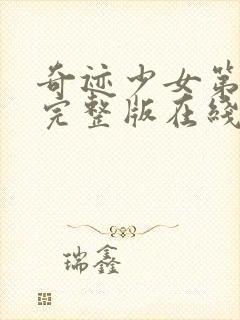 奇迹少女第
完整版在线
瑞鑫